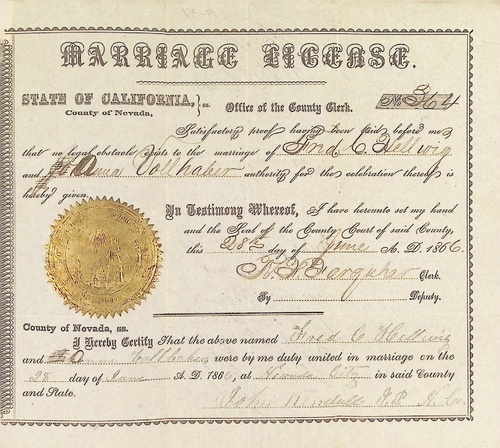 MARRIAGE LICENSE.
STATE OF CALIFORNIA, } ss. Office of the County Clerk. No. 364
County of Nevada,
Satisfactory proof having been paid before me
that no legal obstacle exists to the marriage of Fred C. Hellwig
and Anna Vollhaber authority for the celebration thereof is
hereby given.
In Testimony Whereof, I have hereunto set my hand
and the Seal of the County Court of said County,
this 28th day of June A. D. 1866.
Farquhar Clerk.
By Deputy.
County of Nevada, ss.
I Hereby Certify That the above named Fred C Hellwig
and Anna Vollhaber were by me duly united in marriage on the
28 day of June A. D. 1866, at Nevada City in said County
and State. John Kendall